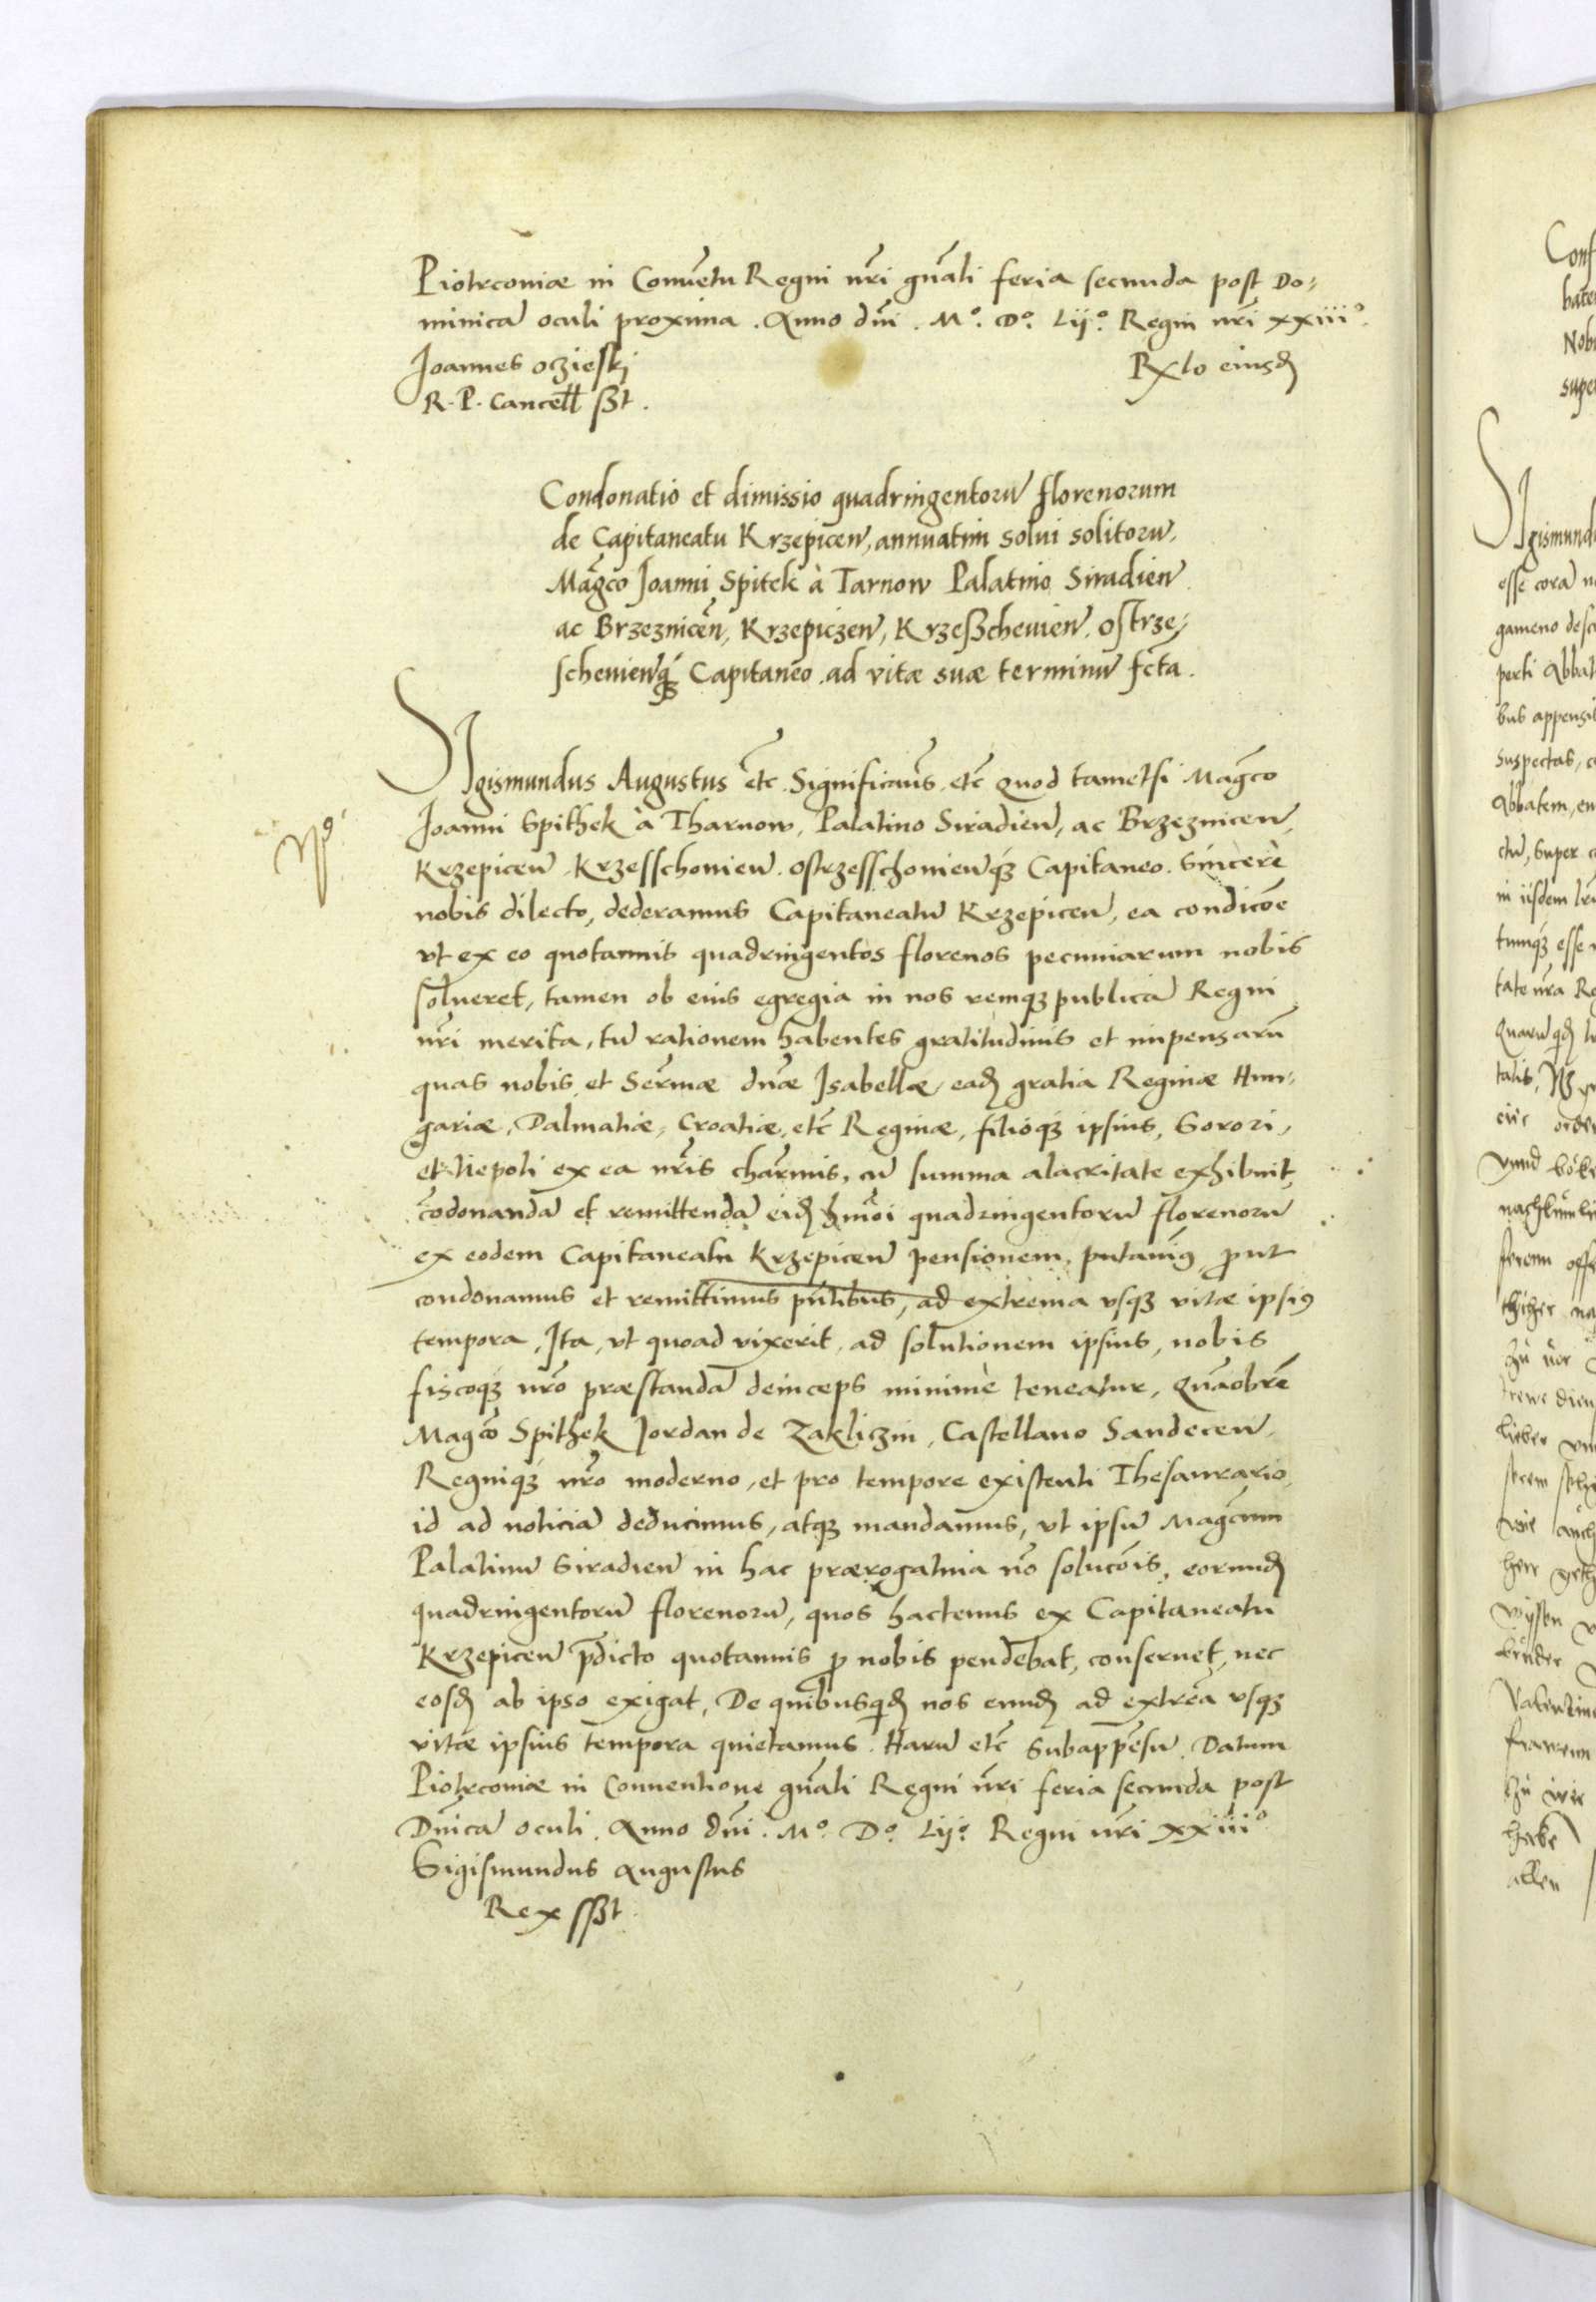 Piotrconiæ in Convẽtu Regni nr̃i gnãli feria secunda post Do-
minicã oculi proxima. Anno dñi. Mº. Dº. Lijº. Regni nr̃i xxiiiº.
Joannes oczieskj
Rlo eiusđ
R. P. Cancell̃ sst.
Condonatio et dimissio quadringentorũ florenorum
de Capitaneatu Krzepiceñ, annuatim solui solitorũ,
Magc̃o Joanni Spitek à Tarnow Palatino Siradieñ
ac Brzeznicẽn, Krzepiczeñ, Krzeßcheuieñ. ostrze-
scheuieñq₃ Capitaneo. ad vitæ suæ terminũ fc̃ta.
Sigismundus Augustus etc̃. Significam̃s. etc̃ Quod tametsi Magc̃o
Joanni Spithek à Tharnow, Palatino Siradieñ, ac Brzezniceñ,
Krzepiceñ. Krzesschouieñ. ostrzesschouieñq₃ Capitaneo. Sincerè
nobis dilecto, dederamus Capitaneatũ Krzepiceñ, ea condicõe
vt ex eo quotannis quadringentos florenos pecuniarum nobis
solueret, tamen ob eius egregia in nos remq₃ publicã Regni
nr̃i merita, tũ rationem habentes gratitudinis et impensarũ
quas nobis et Serm̃æ dnæ̃ Isabellæ, eađ gratia Reginæ Hun-
gariæ, Dalmatiæ, Croatiæ, etc̃ Reginæ, filioq₃ ipsius, Sorori,
et Nepoti ex ea nr̃is charm̃is, cũ summa alacritate exhibuit,
cõdonandã et remittendã eiđ hmõi quadringentorũ florenorũ
ex eodem Capitaneatu Krzepiceñ pensionem, putauim9 ꝓut
condonamus et remittimus pñtibus, ad extrema vsq₃ vitæ ipsi9
tempora, Ita, vt quoad vixerit, ad solutionem ipsius, nobis
fiscoq₃ nrõ præstandã deinceps minimè teneatur, Quãobrẽ
Magc̃o Spithek Jordan de Zakliczin, Castellano Sandeceñ.
Regniq₃ nrõ moderno, et pro tempore existenti Thesaurario
id ad noticiã deducimus, atq₃ mandamus, vt ipsũ Magc̃um
Palatinũ Siradieñ in hac prærogatiua nõ solucõis, eorunđ
quadringentorũ florenorũ, quos hactenus ex Capitaneatu
Krzepiceñ p̃dicto quotannis ꝓ nobis pendebat, conseruet, nec
eosđ ab ipso exigat, De quibusquiđ nos eunđ ad extrẽa vsq₃
vitæ ipsius tempora quietamus. Harũ etc̃ Subapp̃ensũ. Datum
Piotrconiæ in Conuentione gnãli Regni nr̃i feria secunda post
Dnĩcã oculi. Anno dñi. Mº. Dº. Lijº. Regni nr̃i xxiiiº
Sigismundus Augustus
Rex sst.